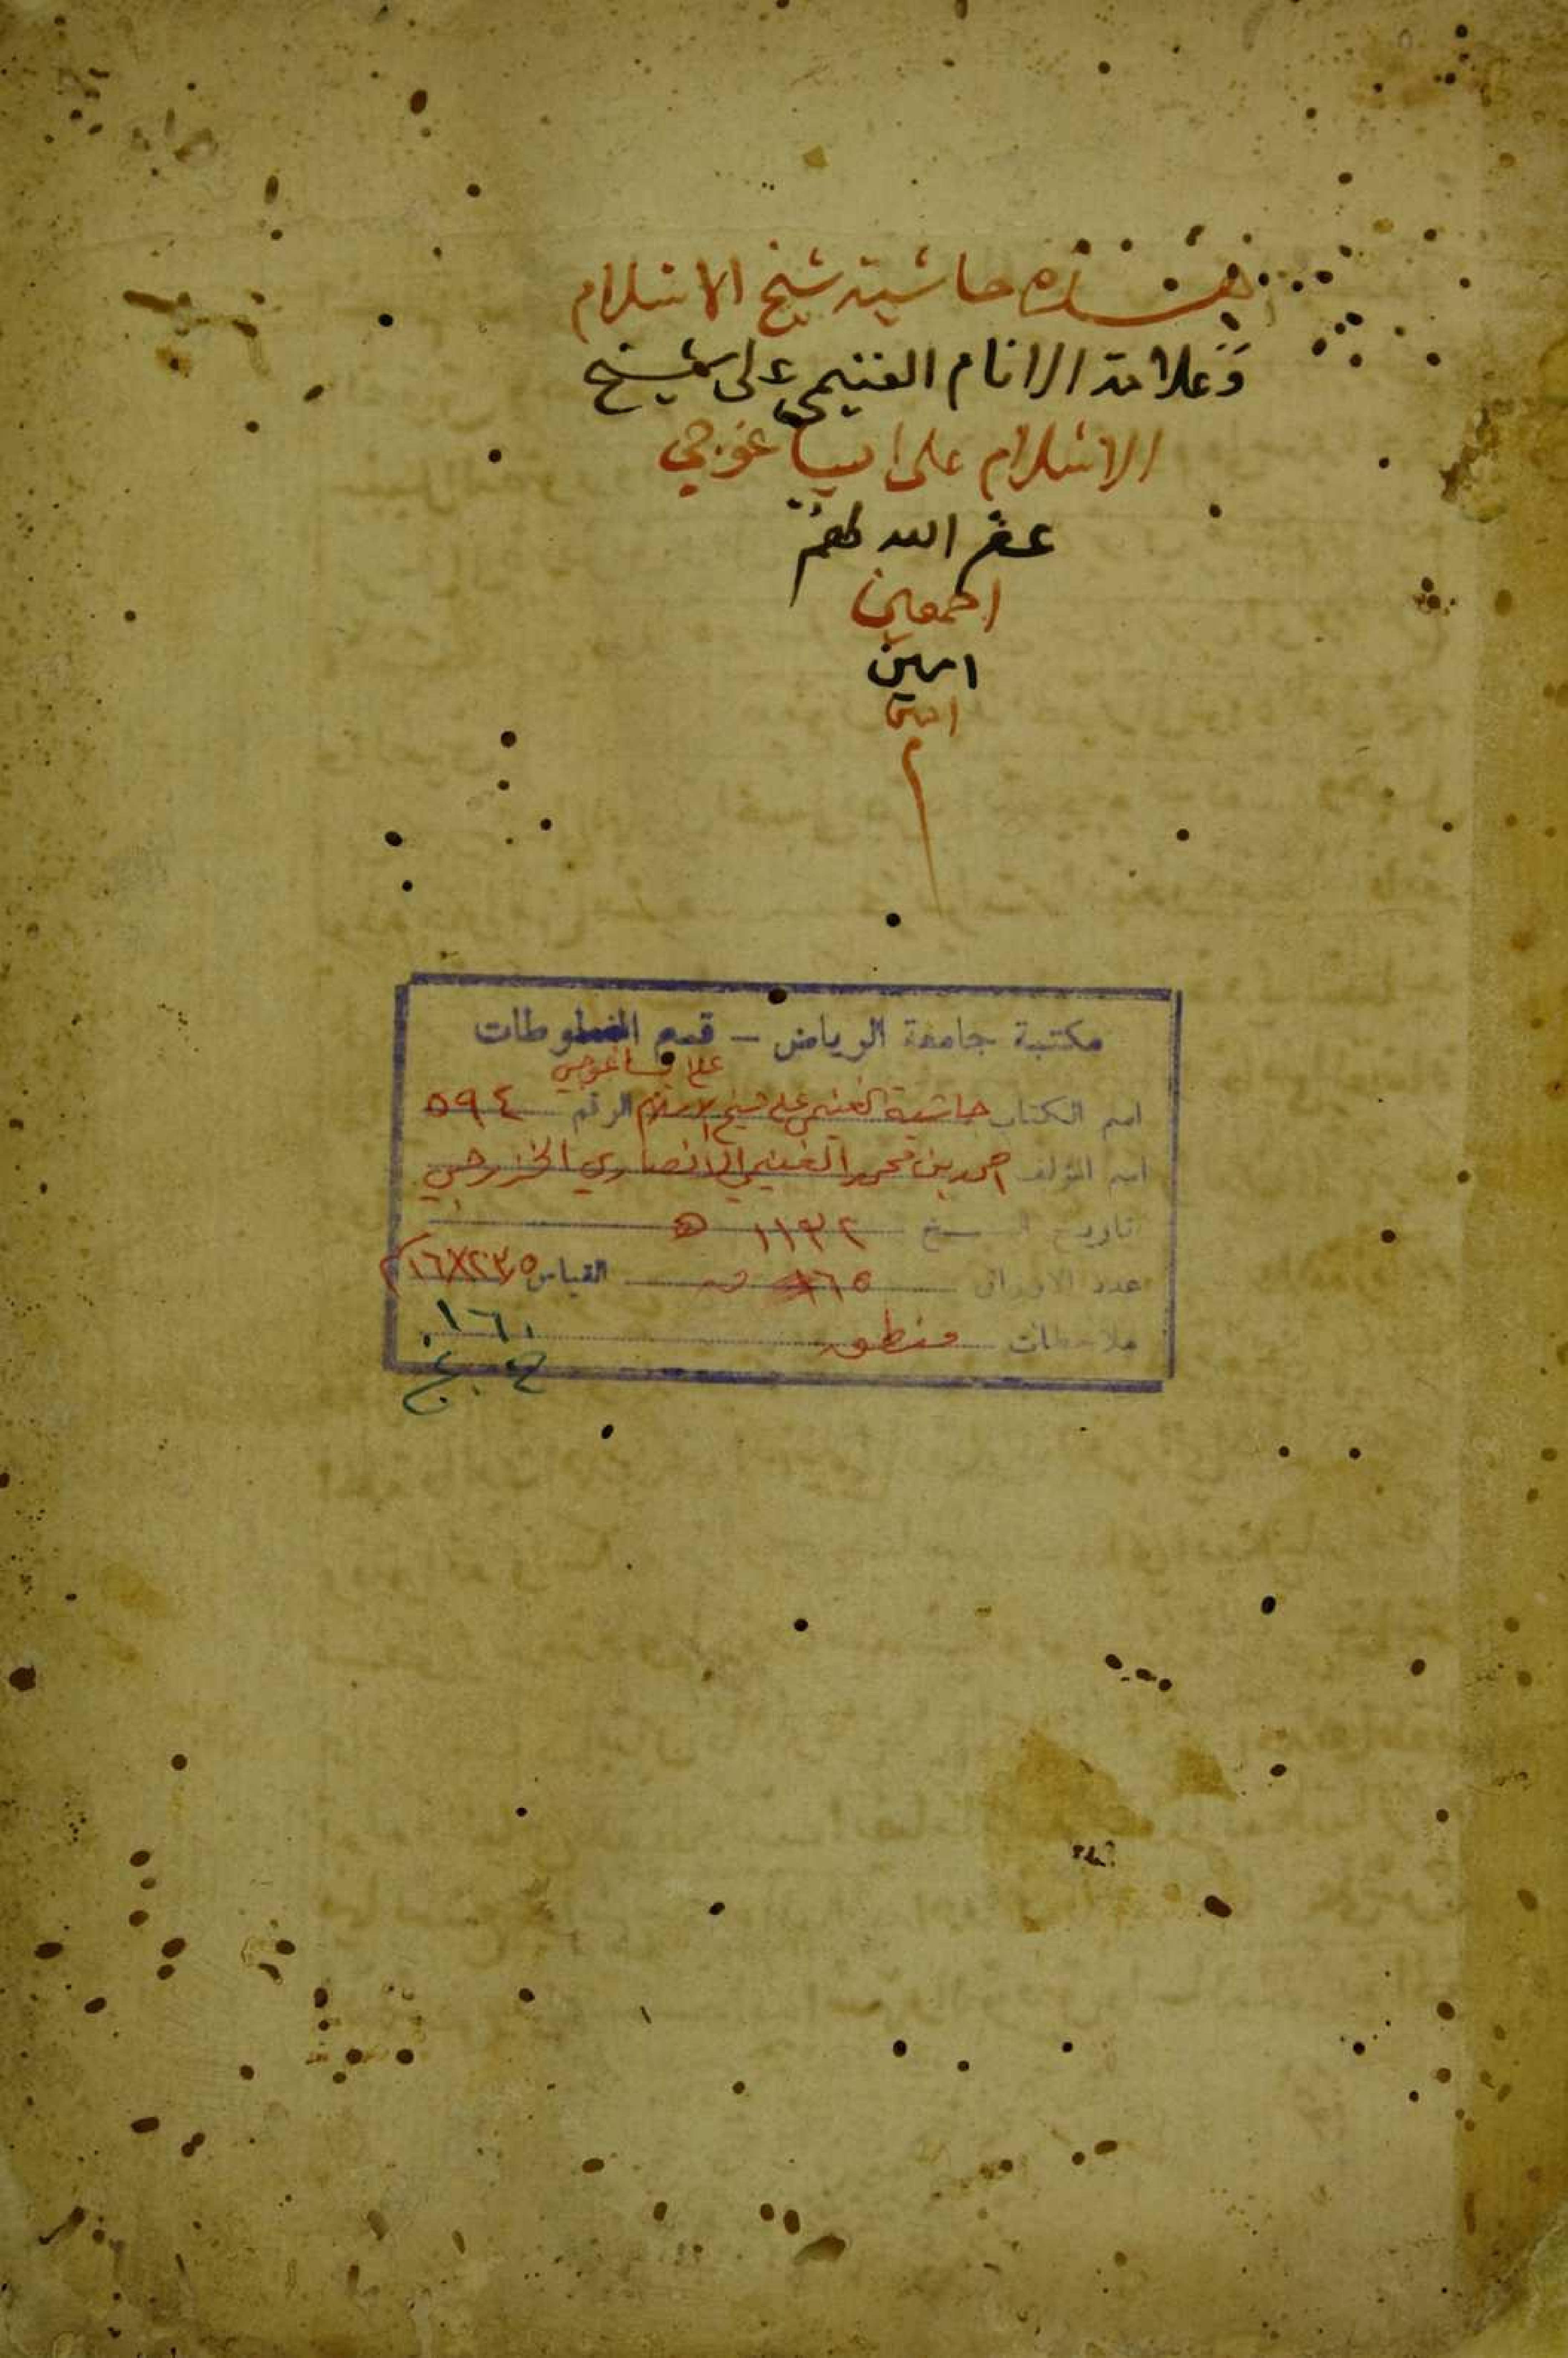 هذه حاشية شيخ الاسلام
وعلامة الانام الغنيمي على شيخ
الاسلام على ايساغوجي
غفر الله لهم
اجمعين
امين
امين
م
مكتبة جامعة الرياض – قسم المخطوطات
على ايساغوجي
اسم الكتاب حاشية الغنيمي على شيخ الاسلام الرقم ٥٩٤
اسم المؤلف احمد بن محمد الغنيمي الانصاري الخزرجي
تاريخ النسخ ١١٣٢ ه
عدد الاوراق ١٦٥ القياس ١٦X٢٣,٥
ملاحظات منطق
١٦٠